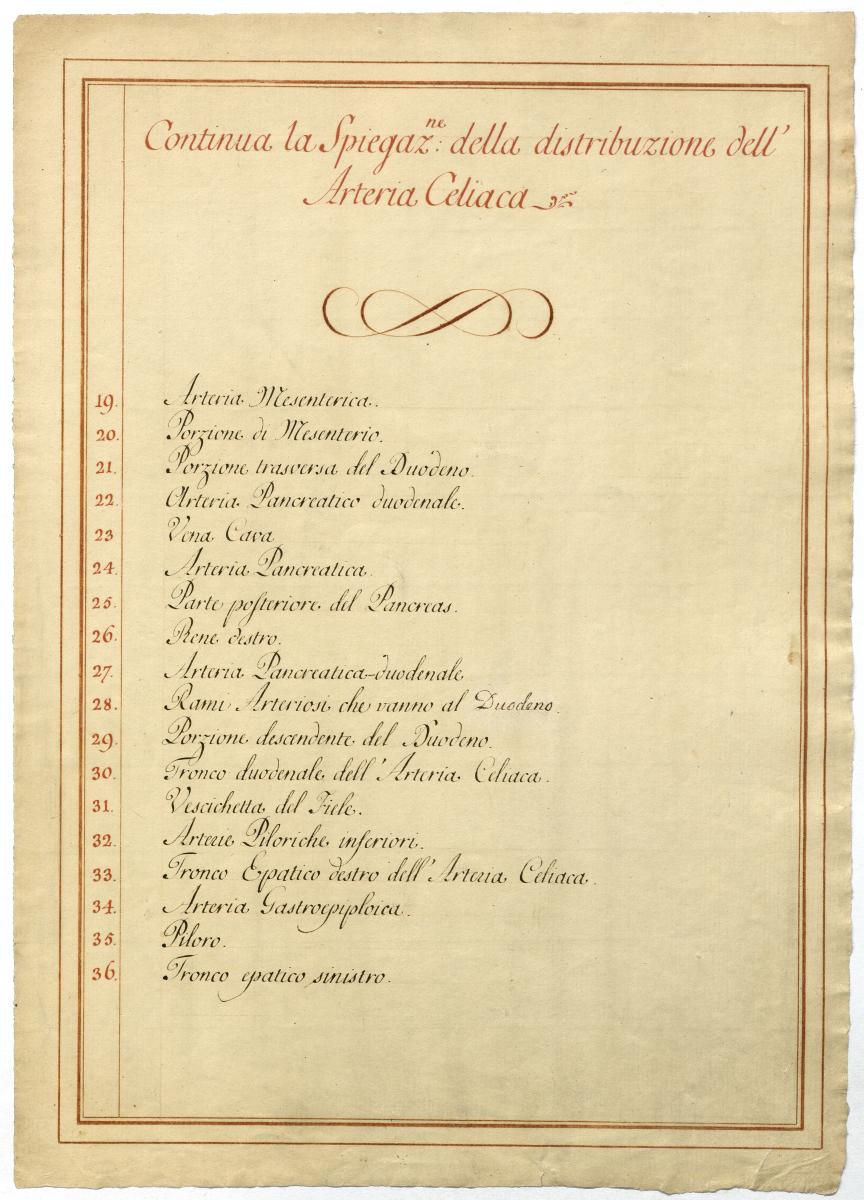 Continua la Spiegaz.ne: della distribuzione dell'
Arteria Celiaca
19. Arteria Mesenterica.
20. Porzione di Mesenterio.
21. Porzione trasversa del Duodeno.
22. Arteria Pancreatico duodenale.
23 Vena Cava
24. Arteria Pancreatica.
25. Parte posteriore del Pancreas.
26. Rene destro.
27. Arteria Pancreatica-duodenale
28. Rami Arteriosi che vanno al Duodeno.
29. Porzione descendente del Duodeno.
30. Tronco duodenale dell'Arteria Celiaca.
31. Vescichetta del Fiele.
32. Arterie Piloriche inferiori.
33. Tronco Epatico destro dell'Arteria Celiaca.
34. Arteria Gastroepiploica.
35. Piloro.
36. Tronco epatico sinistro.